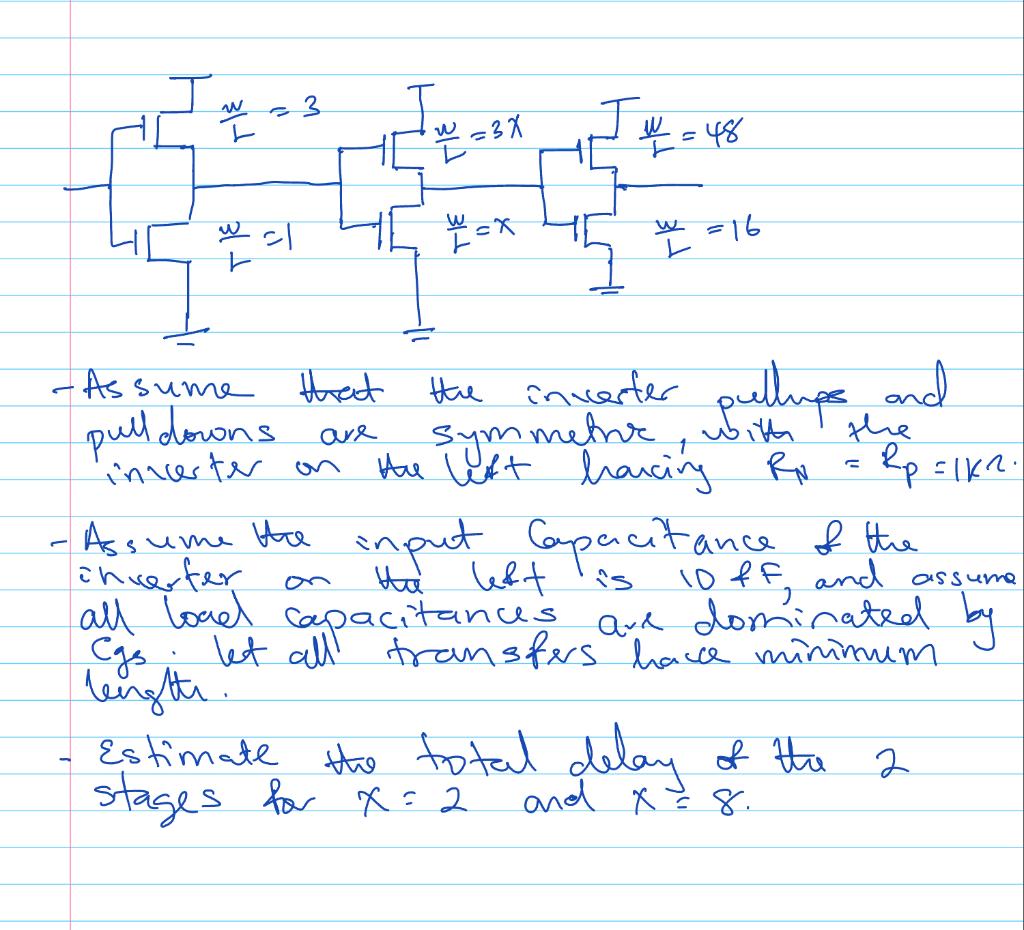 W/L = 3
W/L = 3X
W/L = 48
W/L = 1
W/L = X
W/L = 16
- Assume that the inverter pullups and
pulldowns are symmetric, with the
inverter on the left having RN = RP = 1KΩ.
- Assume the input Capacitance of the
inverter on the left is 10 fF, and assume
all load capacitances are dominated by
Cgs. let all transfers have minimum
length.
- Estimate the total delay of the 2
stages for X = 2 and X = 8.